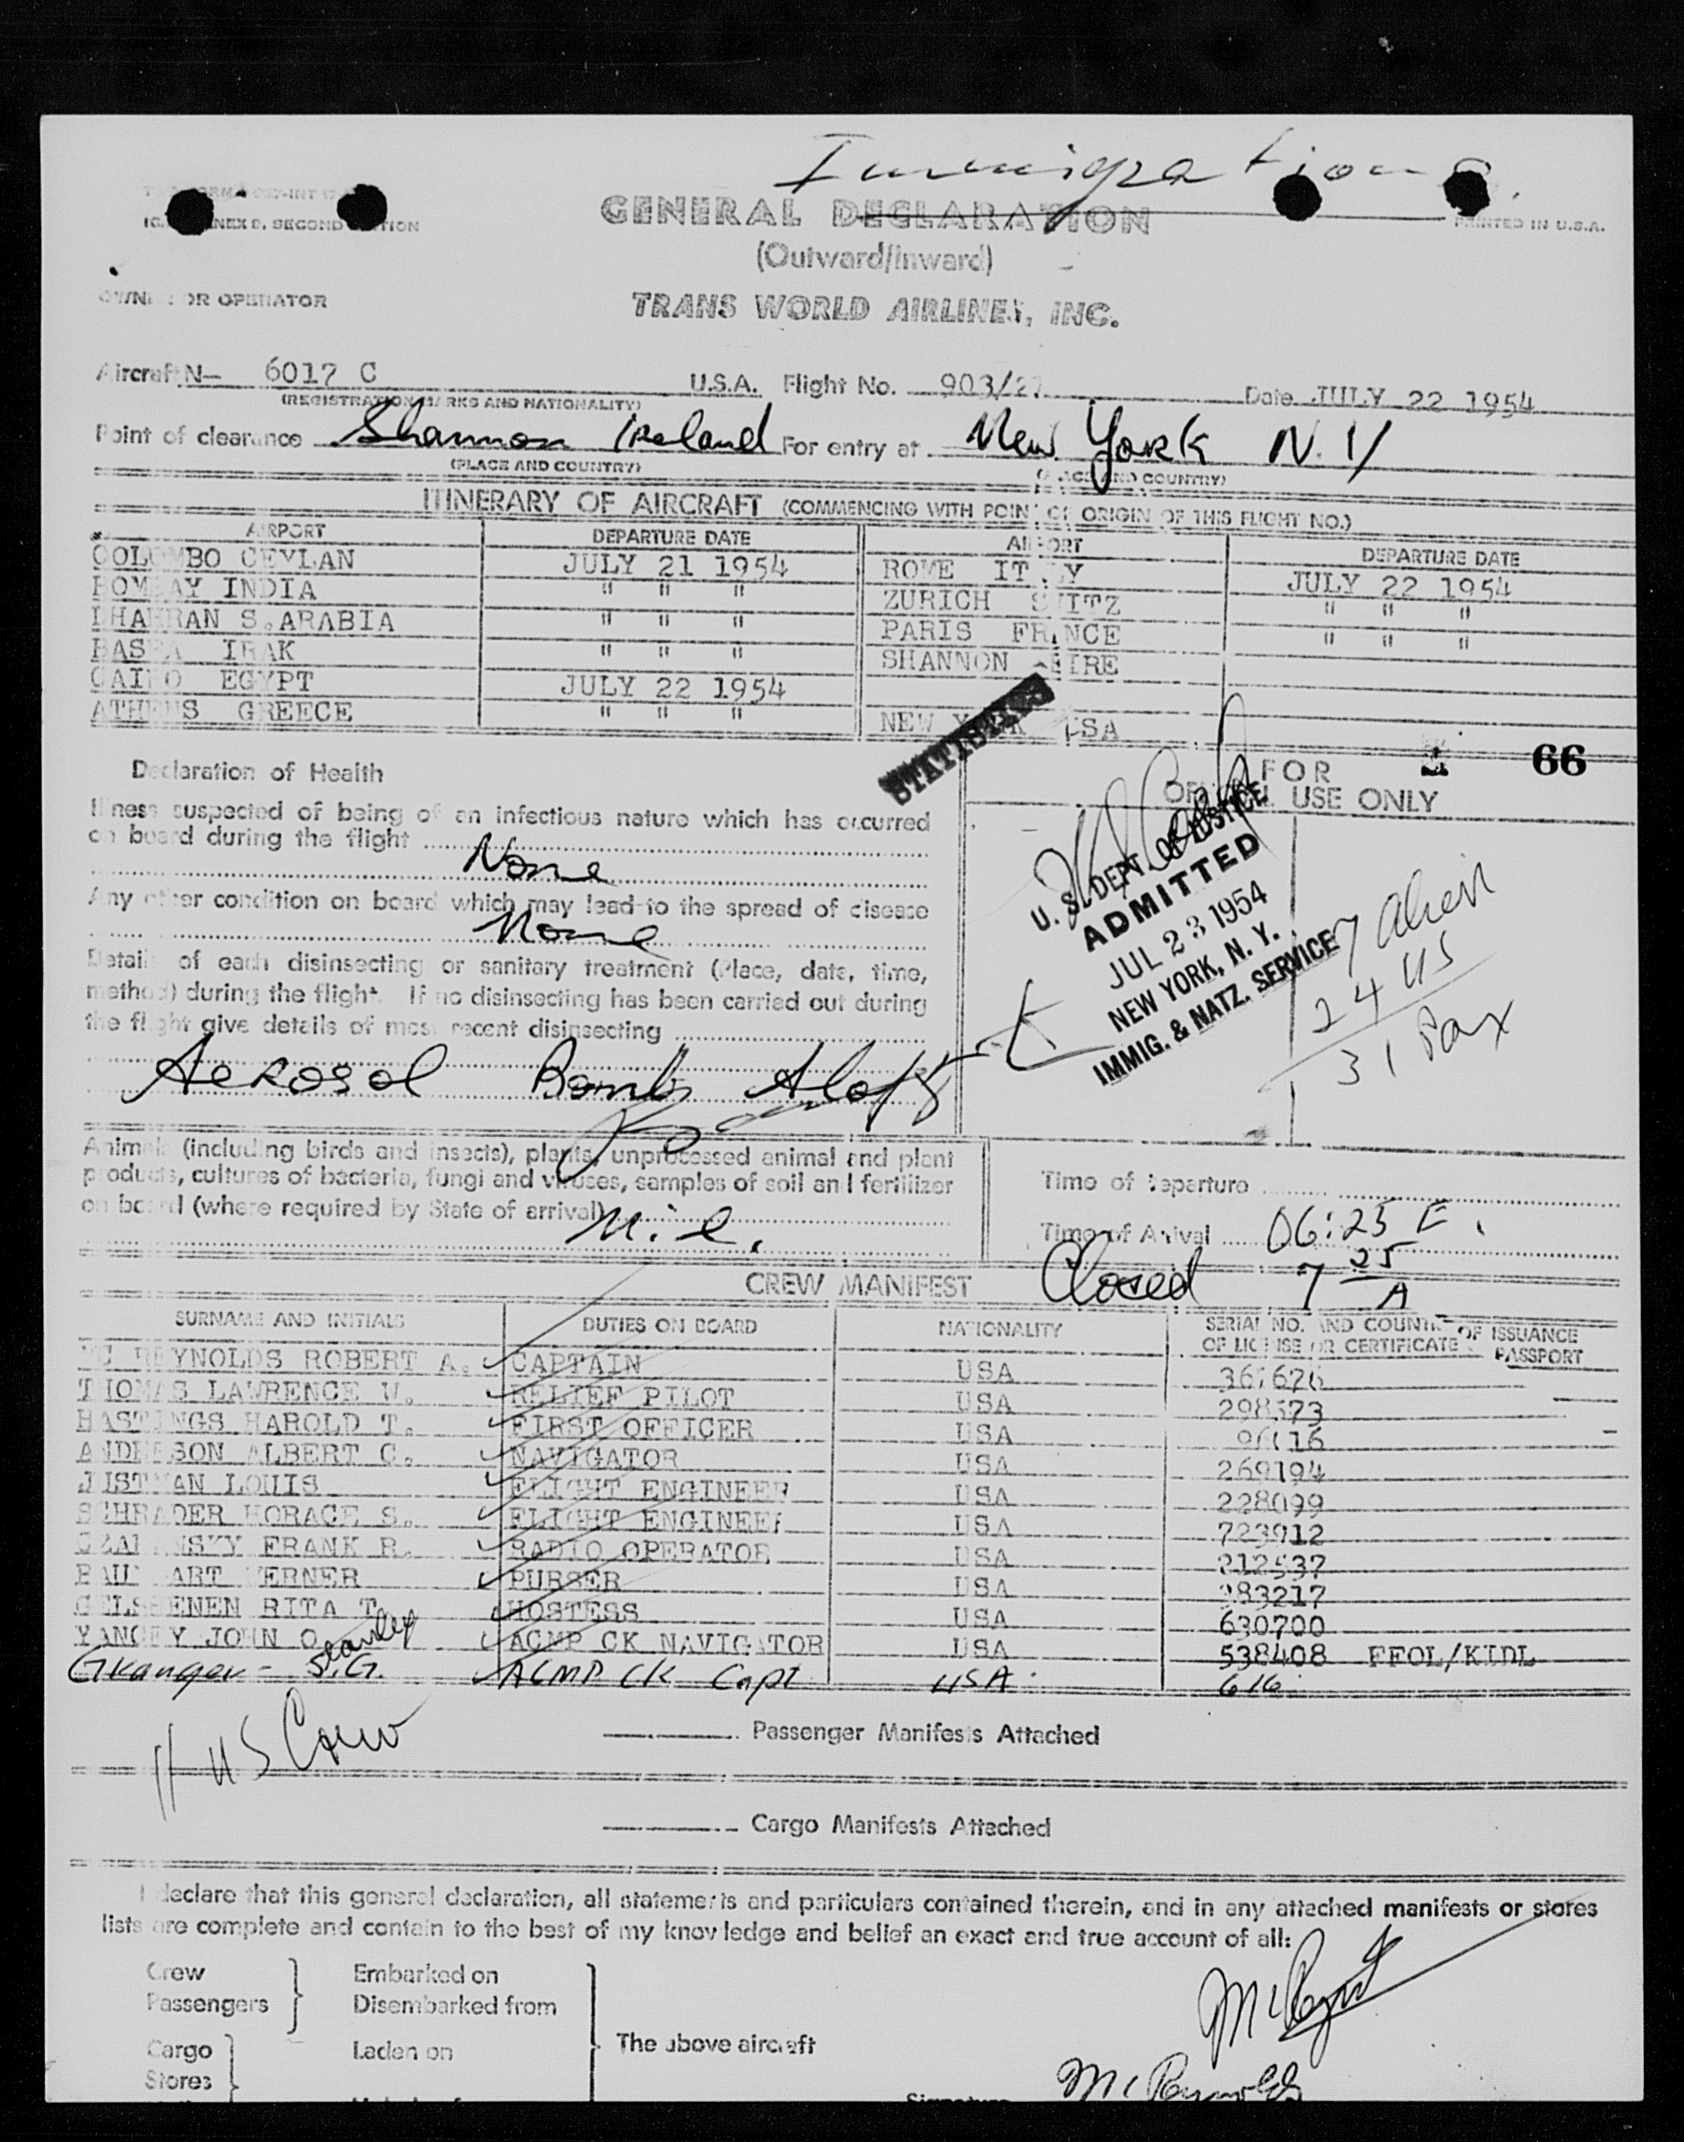 Immigration
GENERAL DECLARATION
PRINTED IN U.S.A.
(Outward/Inward)
OWNER OR OPERATOR
TRANS WORLD AIRLINES, INC.
Aircraft N— 6017 C U.S.A. Flight No. 903/21 Date JULY 22 1954
(REGISTRATION MARKS AND NATIONALITY)
Point of clearance Shannon Ireland For entry at New York N.Y
(PLACE AND COUNTRY) (PLACE AND COUNTRY)
ITINERARY OF AIRCRAFT (COMMENCING WITH POINT OF ORIGIN OF THIS FLIGHT NO.)
AIRPORT DEPARTURE DATE AIRPORT DEPARTURE DATE
COLOMBO CEYLAN JULY 21 1954 ROME ITALY JULY 22 1954
BOMBAY INDIA " " " ZURICH SWITZ " " "
DHAHRAN S.ARABIA " " " PARIS FRANCE " " "
BASRA IRAK " " " SHANNON EIRE
CAIRO EGYPT JULY 22 1954
ATHENS GREECE " " " NEW YORK USA
STATISTICS
66
Declaration of Health
FOR
OFFICIAL USE ONLY
Illness suspected of being of an infectious nature which has occurred
on board during the flight
None
Any other condition on board which may lead to the spread of disease
None
Details of each disinsecting or sanitary treatment (Place, date, time,
method) during the flight. If no disinsecting has been carried out during
the flight give details of most recent disinsecting
Aerosol Bombs Aloft
U. S. DEPT. OF JUSTICE
ADMITTED
JUL 23 1954
NEW YORK, N. Y.
IMMIG. & NATZ. SERVICE
7 alien
24 US
31 Pax
Animals (including birds and insects), plants, unprocessed animal and plant
products, cultures of bacteria, fungi and viruses, samples of soil and fertilizer
on board (where required by State of arrival)
Nil.
Time of Departure
Time of Arrival 06:25 E.
Closed 7 25 A
CREW MANIFEST
SURNAME AND INITIALS DUTIES ON BOARD NATIONALITY SERIAL NO. AND COUNTRY OF ISSUANCE
OF LICENSE OR CERTIFICATE PASSPORT
MC REYNOLDS ROBERT A. CAPTAIN USA
THOMAS LAWRENCE W. RELIEF PILOT USA 298573
HASTINGS HAROLD T. FIRST OFFICER USA
ANDERSON ALBERT C. NAVIGATOR USA 269194
JUSTMAN LOUIS FLIGHT ENGINEER USA 228099
SCHRADER HORACE S. FLIGHT ENGINEER USA 723912
FRANK R. RADIO OPERATOR USA 212537
WERNER PURSER USA 283217
RITA T. HOSTESS USA 630700
YANCEY JOHN O. ACMP CK NAVIGATOR USA 538408 FFOL/KIDL
Granger - S.G. Stanley ACMP CK Capt USA 616
11 US Crew
Passenger Manifests Attached
Cargo Manifests Attached
I declare that this general declaration, all statements and particulars contained therein, and in any attached manifests or stores
lists are complete and contain to the best of my knowledge and belief an exact and true account of all:
Crew Embarked on
Passengers Disembarked from
The above aircraft
Cargo Laden on
Stores
Signature McReynolds